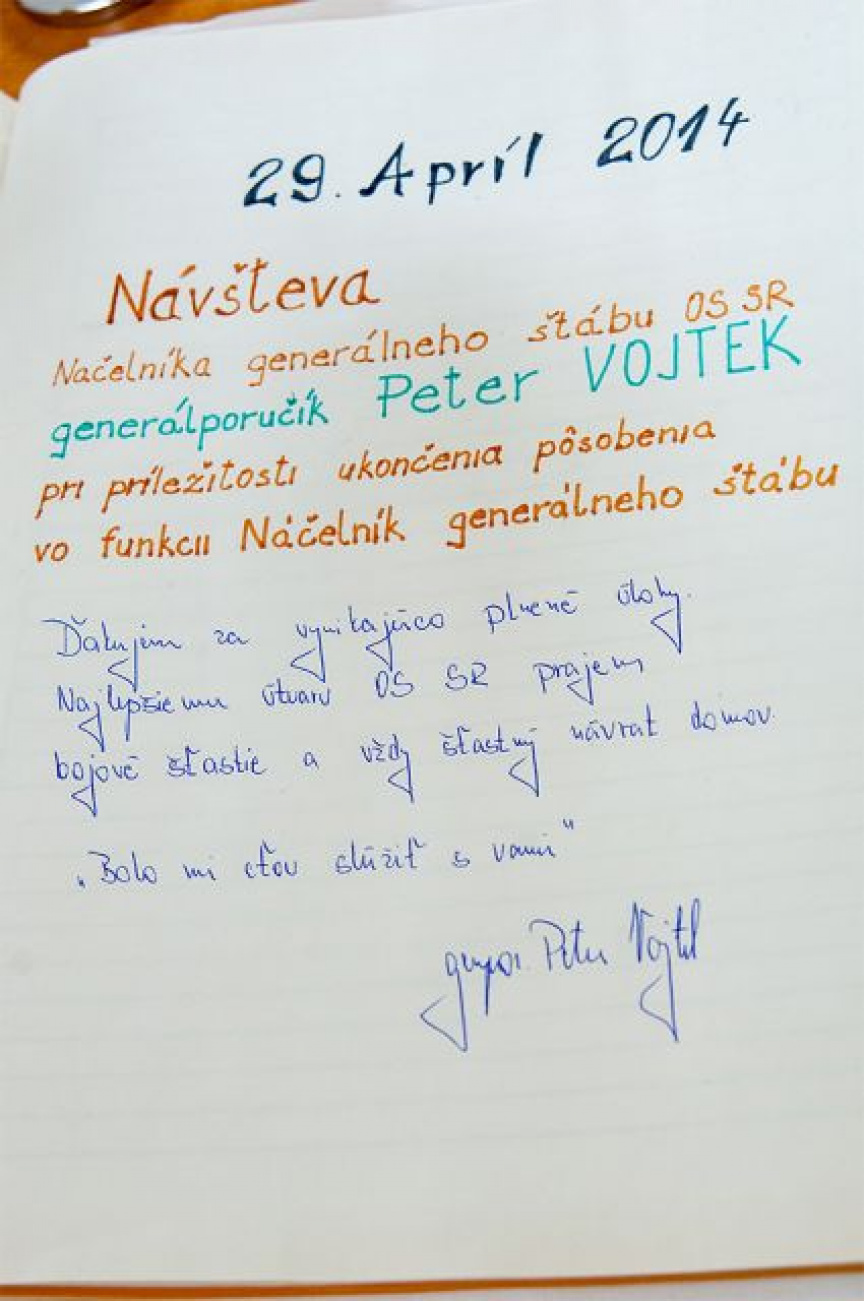 29. Apríl 2014
Návšteva
Načelníka generálneho štábu OS SR
generálporučík Peter VOJTEK
pri príležitosti ukončenia pôsobenia
vo funkcii Náčelník generálneho štábu
Ďakujem za vynikajúco plnené úlohy.
Najlepšiemu útvaru OS SR prajem
bojové šťastie a vždy šťastný návrat domov.
„Bolo mi cťou slúžiť s vami"
genpor. Peter Vojtek